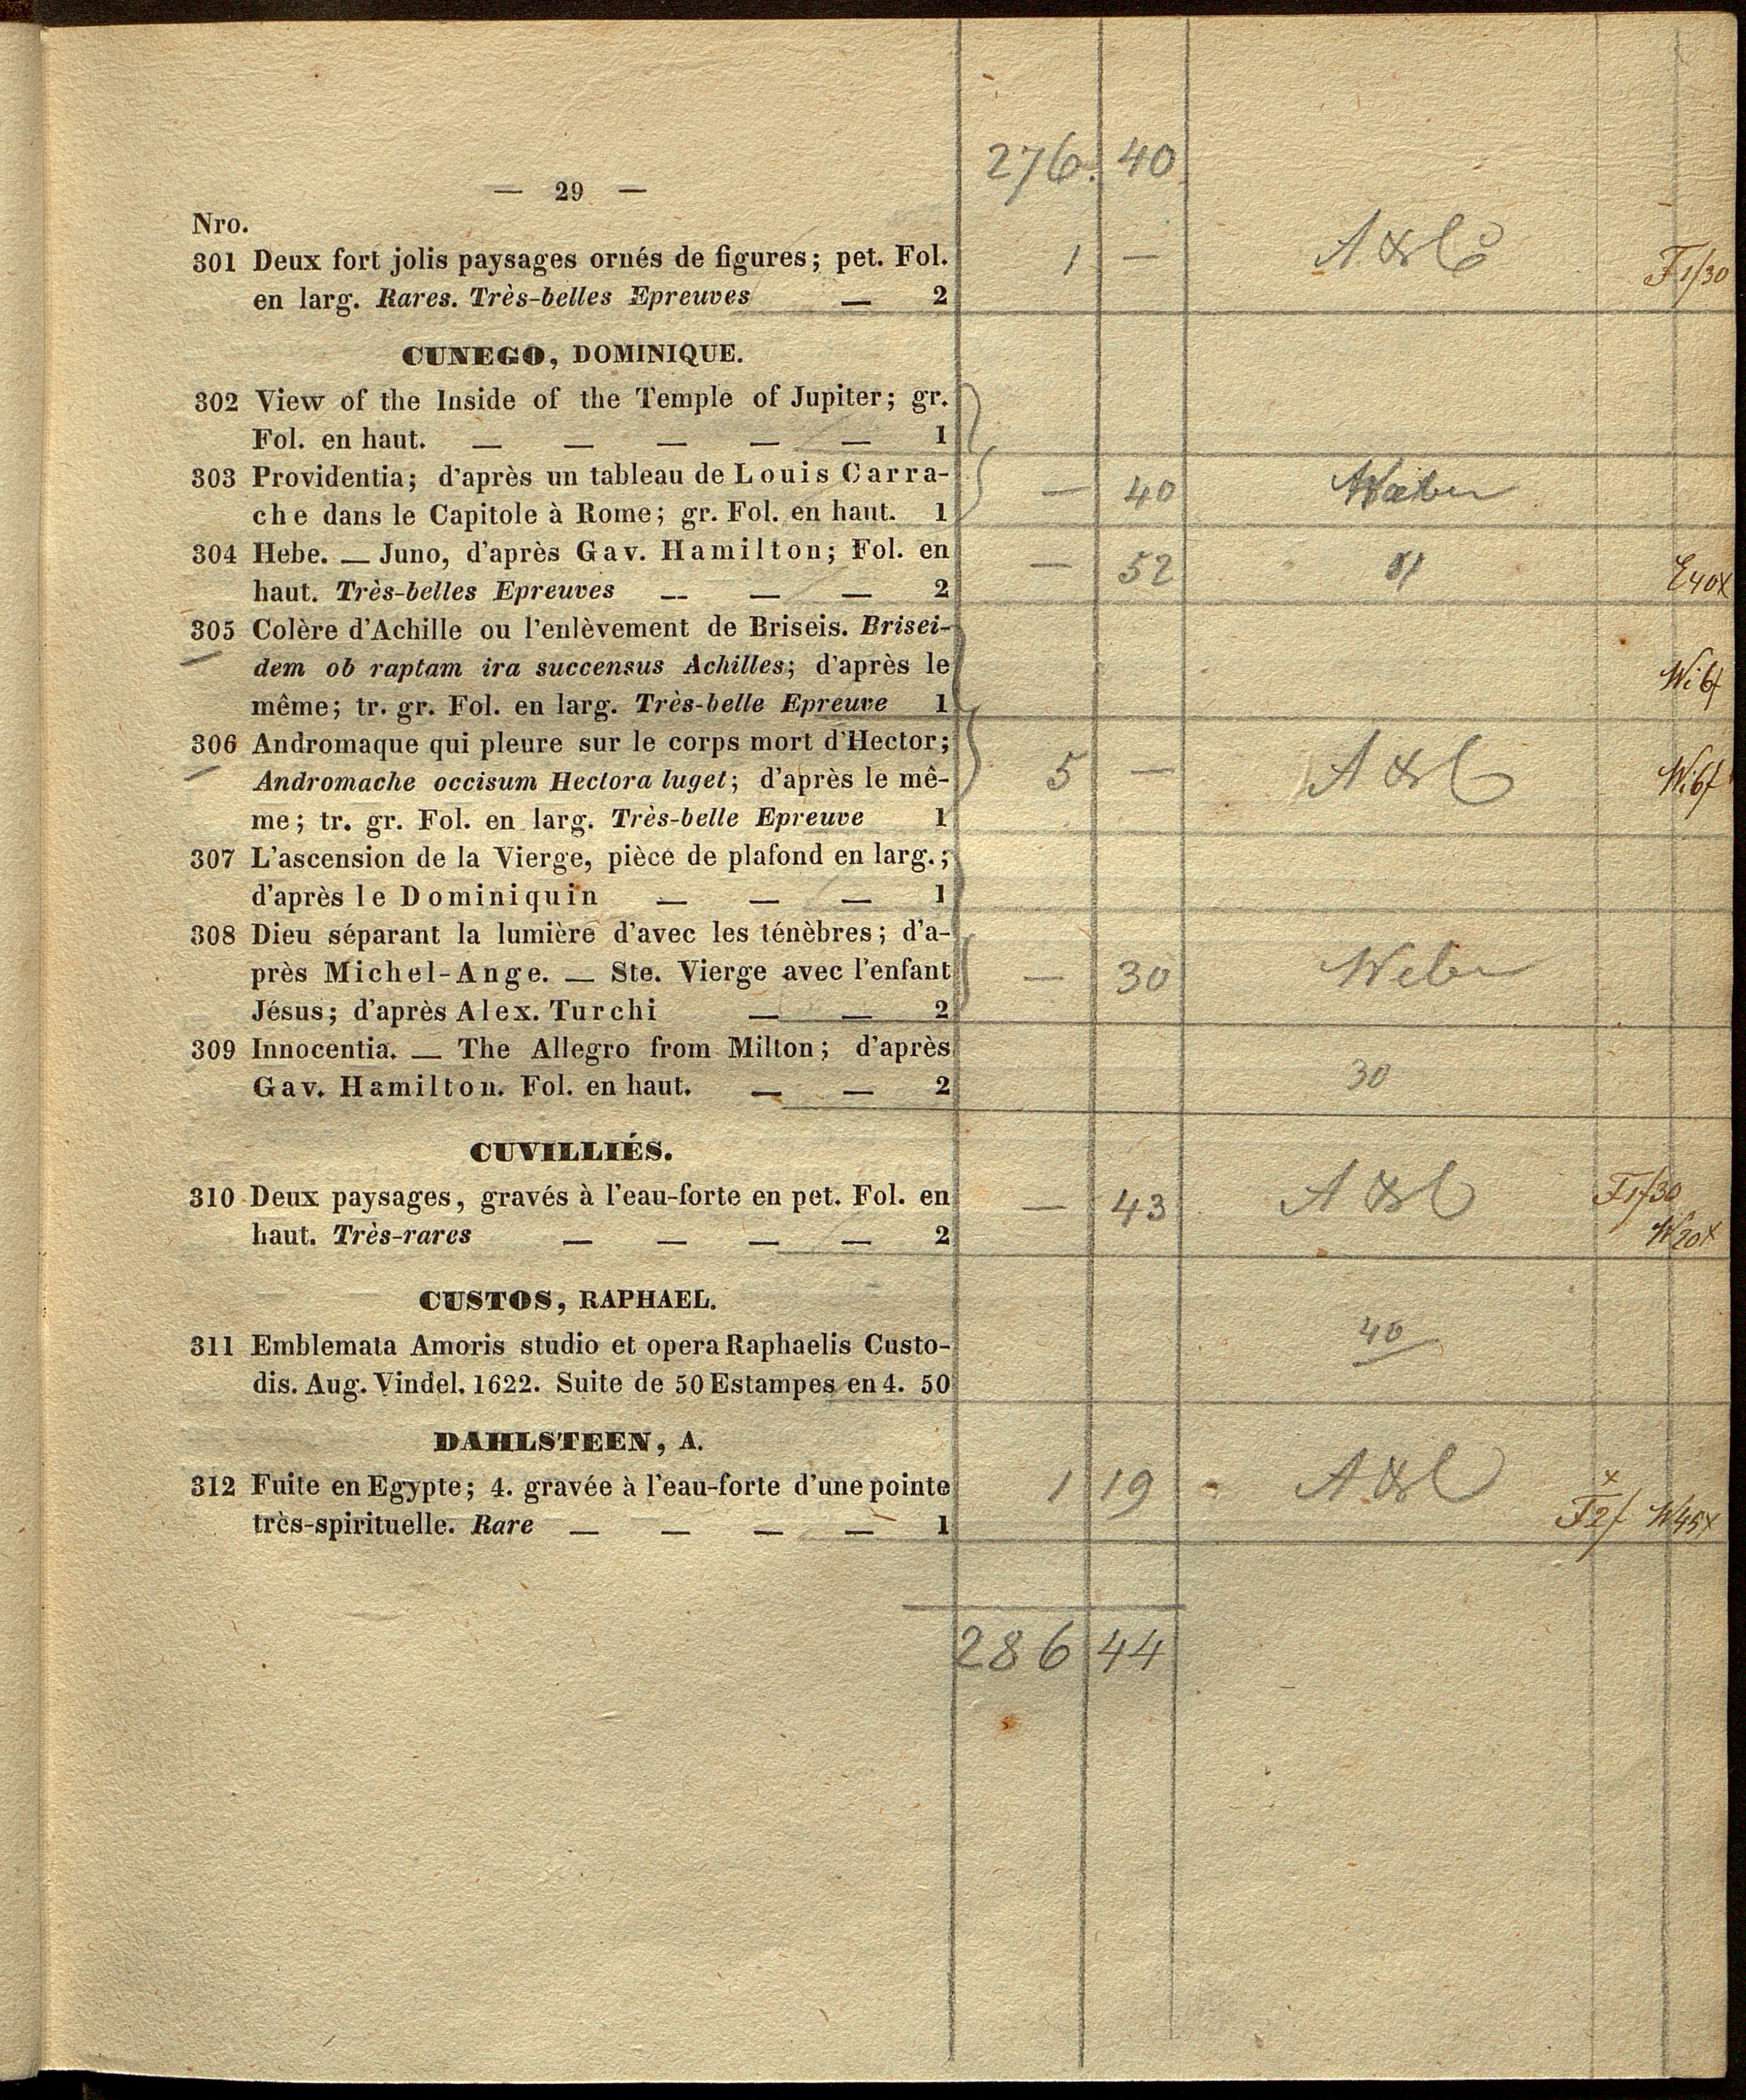 276. 40
— 29 —
Nro.
301 Deux fort jolis paysages ornés de figures; pet. Fol. 1 — F 1/30
en larg. Rares. Très-belles Epreuves — 2
CUNEGO, DOMINIQUE.
302 View of the Inside of the Temple of Jupiter; gr.
Fol. en haut. — — — — — 1
303 Providentia; d'après un tableau de Louis Carra-
che dans le Capitole à Rome; gr. Fol. en haut. 1 — 40 Weber
304 Hebe. — Juno, d'après Gav. Hamilton; Fol. en — 52
haut. Très-belles Epreuves — — — 2 E40x
305 Colère d'Achille ou l'enlèvement de Briseis. Brisei-
dem ob raptam ira succensus Achilles; d'après le
même; tr. gr. Fol. en larg. Très-belle Epreuve 1
306 Andromaque qui pleure sur le corps mort d'Hector;
Andromache occisum Hectora luget; d'après le mê- 5 —
me; tr. gr. Fol. en larg. Très-belle Epreuve 1
307 L'ascension de la Vierge, pièce de plafond en larg.;
d'après le Dominiquin — — — 1
308 Dieu séparant la lumière d'avec les ténèbres; d'a-
près Michel-Ange. — Ste. Vierge avec l'enfant — 30 Weber
Jésus; d'après Alex. Turchi — — 2
309 Innocentia. — The Allegro from Milton; d'après
Gav. Hamilton. Fol. en haut. — — 2 30
CUVILLIÉS.
310 Deux paysages, gravés à l'eau-forte en pet. Fol. en — 43 F1/30
haut. Très-rares — — — — 2 W20x
CUSTOS, RAPHAEL.
311 Emblemata Amoris studio et opera Raphaelis Custo- 40
dis. Aug. Vindel. 1622. Suite de 50 Estampes en 4. 50
DAHLSTEEN, A.
312 Fuite en Egypte; 4. gravée à l'eau-forte d'une pointe 1 19
très-spirituelle. Rare — — — — 1 F2f W45x
286 44